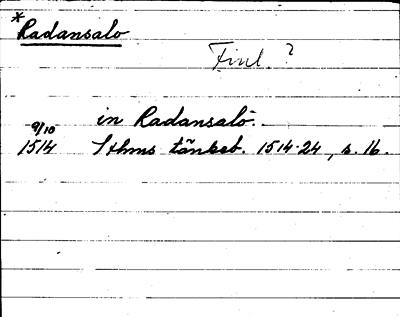 *Radansalo
Finl. ?
in Radansalo.
9/10
1514 Sthms tänkeb. 1514-24, s. 16.